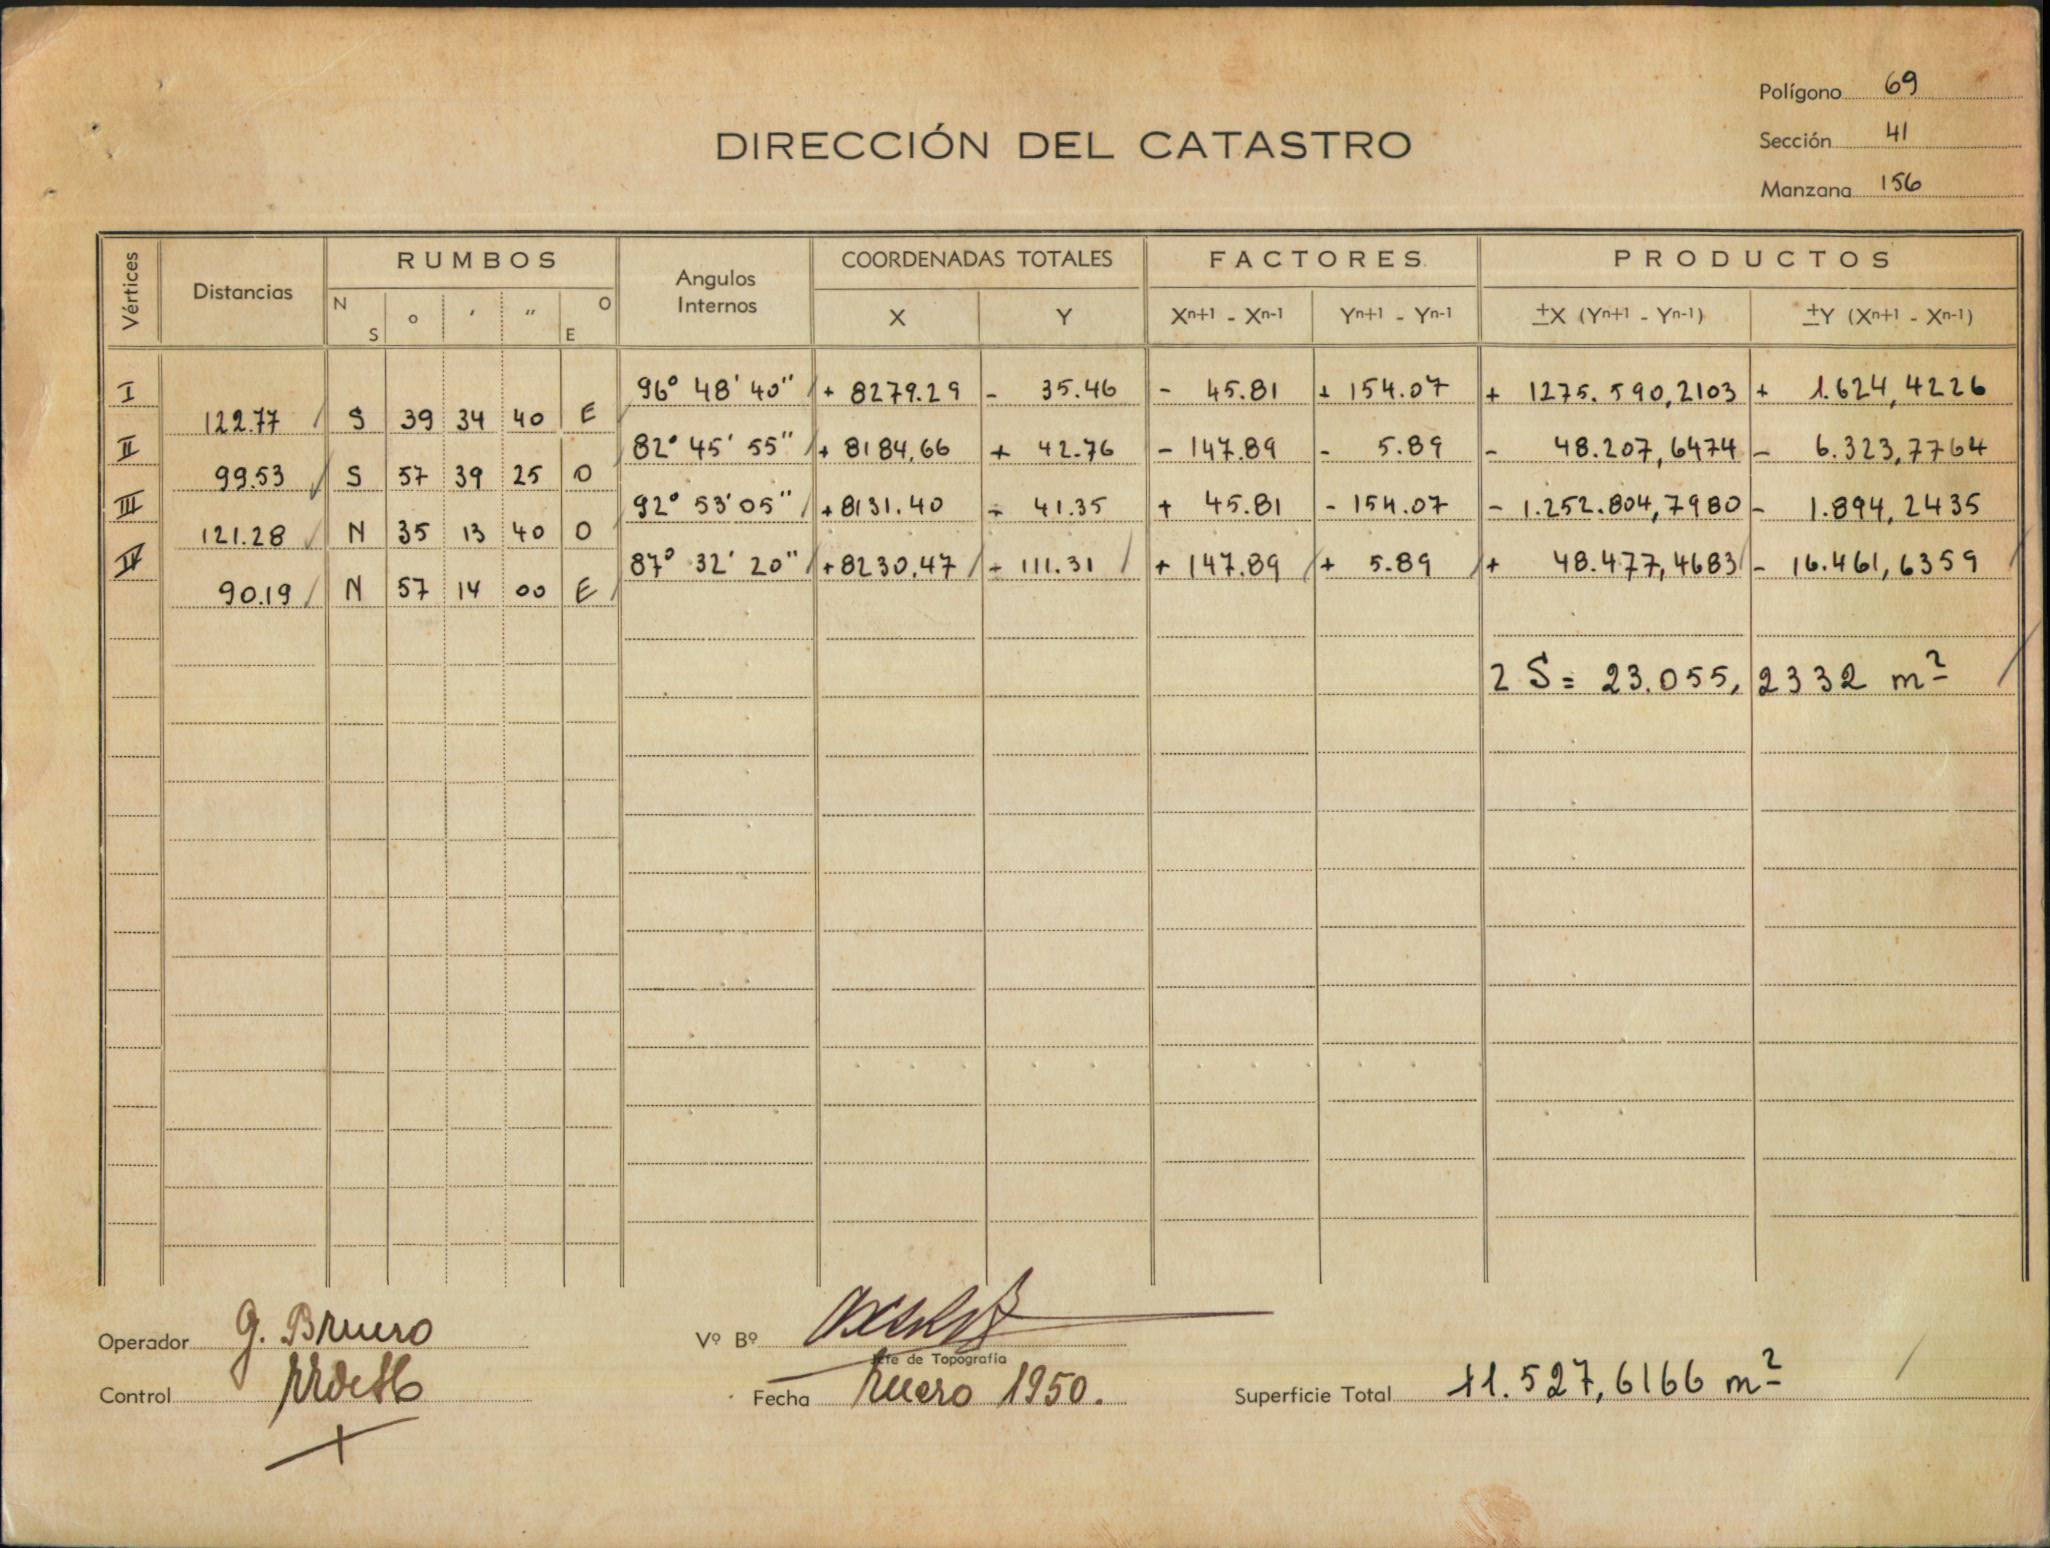 Polígono 69
DIRECCIÓN DEL CATASTRO
Sección 41
Manzana 156
Vértices Distancias RUMBOS Angulos Internos COORDENADAS TOTALES FACTORES PRODUCTOS
N S ° ' " O E X Y Xn+1 - Xn-1 Yn+1 - Yn-1 ±X (Yn+1 - Yn-1) ±Y (Xn+1 - Xn-1)
I 96° 48' 40" + 8279.29 - 35.46 - 45.81 + 154.07 + 1275.590,2103 + 1.624,4226
122.77 S 39 34 40 E
II 82° 45' 55" + 8184,66 + 42.76 - 147.89 - 5.89 - 48.207,6474 - 6.323,7764
99.53 S 57 39 25 O
III 92° 53' 05" + 8131.40 - 41.35 + 45.81 - 154.07 - 1.252.804,7980 - 1.894,2435
121.28 N 35 13 40 O
IV 87° 32' 20" + 8230,47 - 111.31 + 147.89 + 5.89 + 48.477,4683 - 16.461,6359
90.19 N 57 14 00 E
2 S = 23.055,2332 m²
Operador G. Bruero
Vº Bº
Jefe de Topografía
Control
Fecha Enero 1950.
Superficie Total 11.527,6166 m²